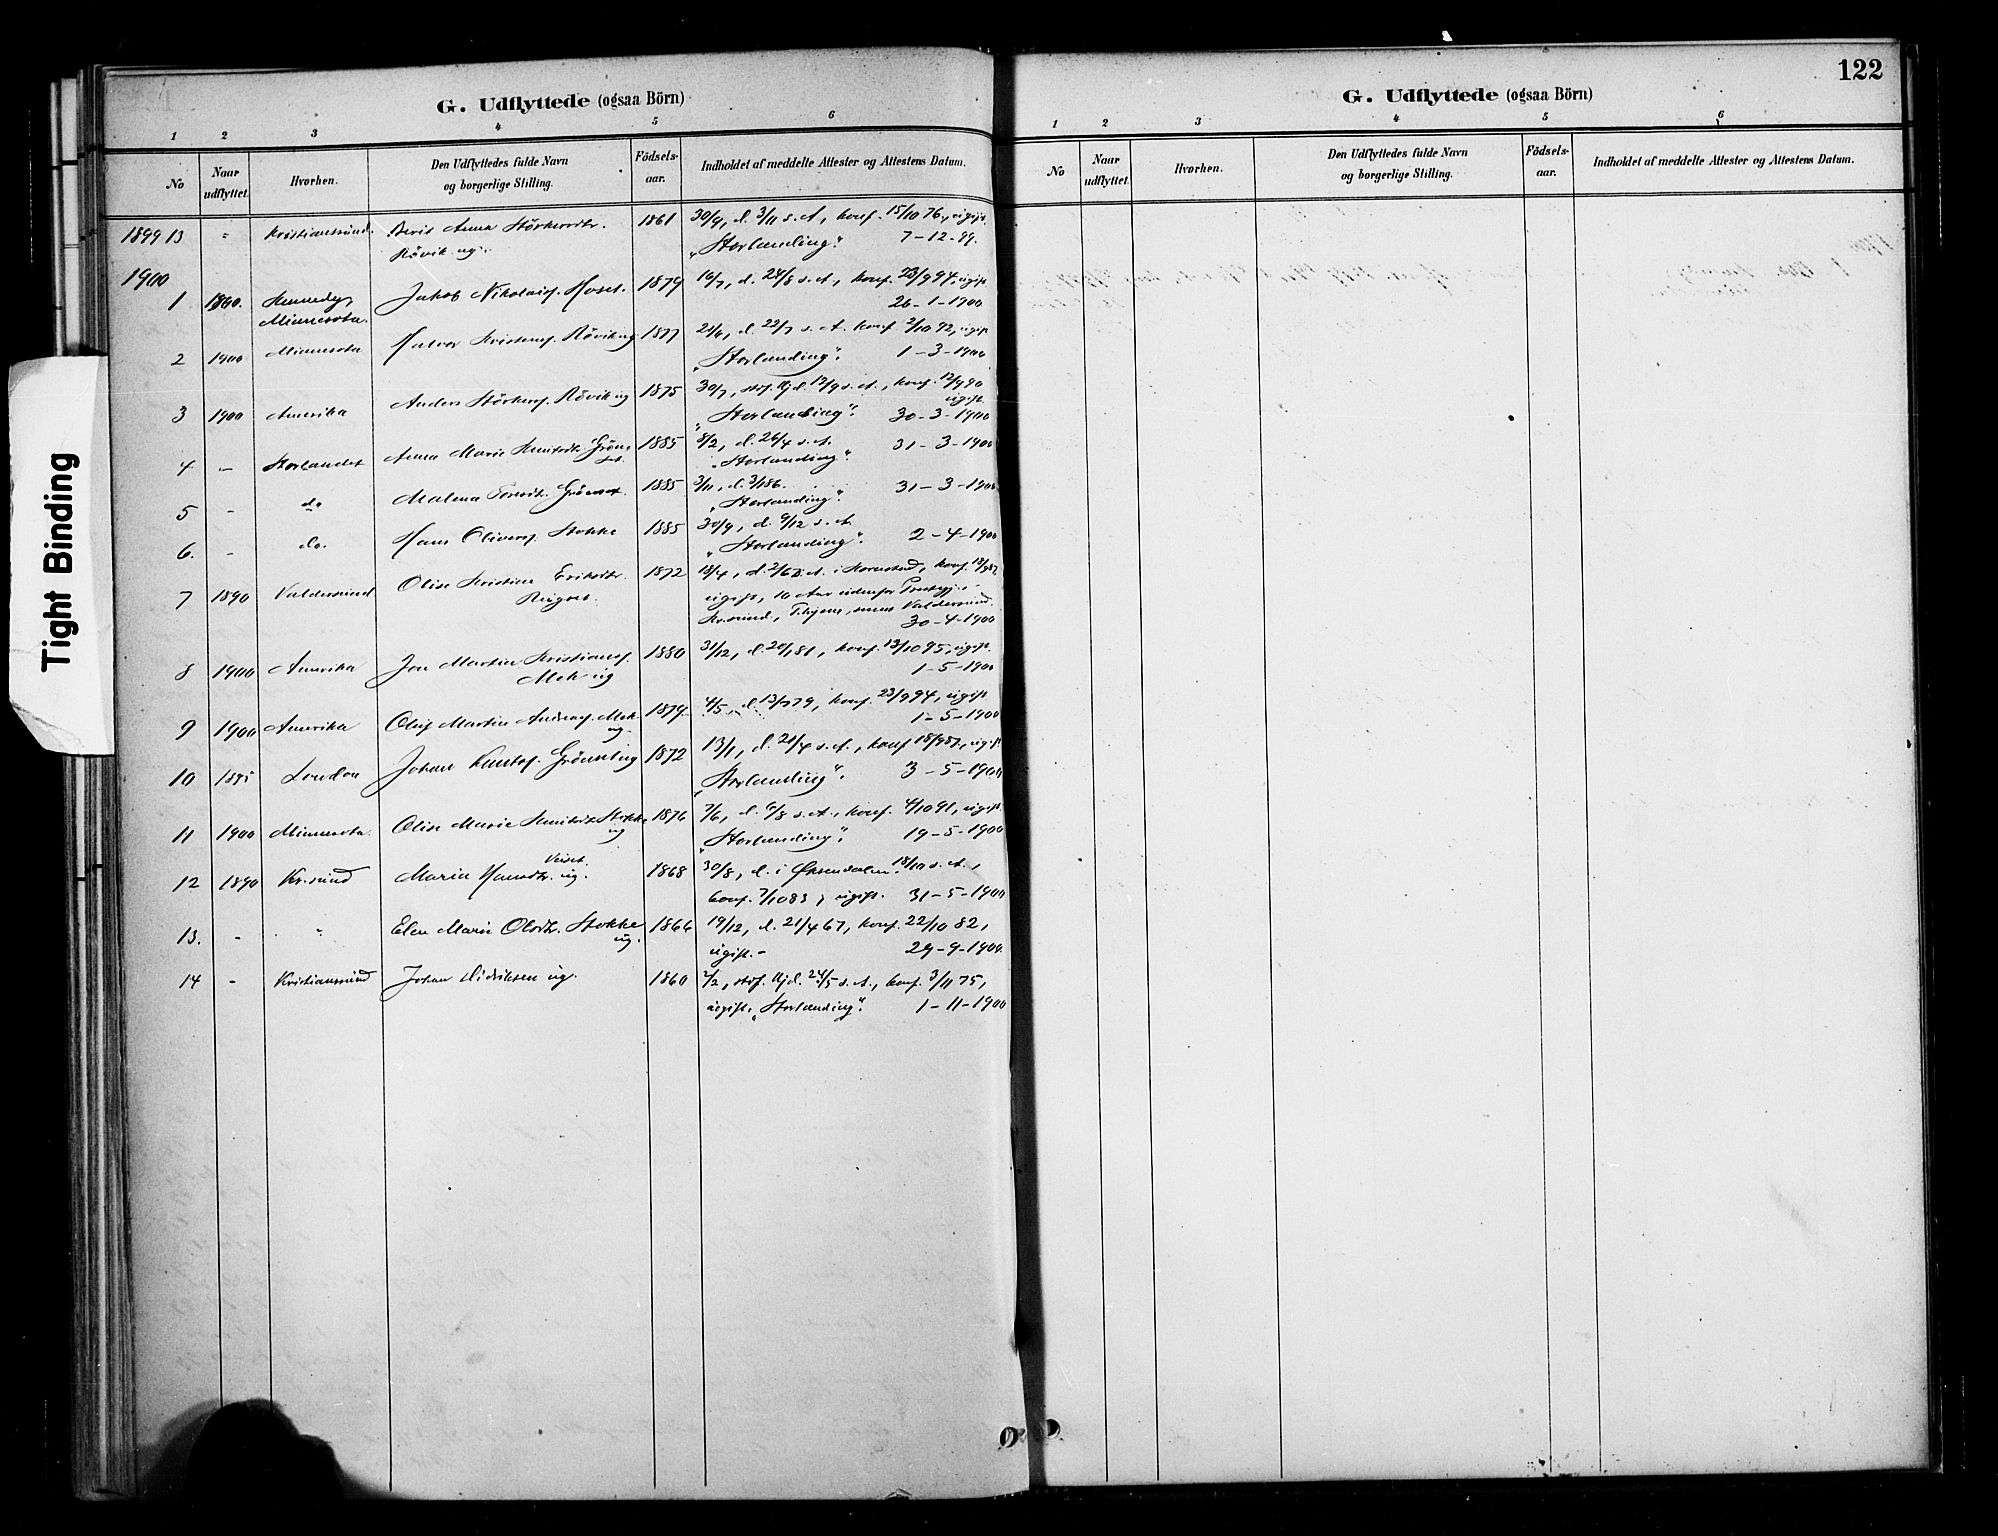 122
G. Udflyttede (ogsaa Börn)
1 2 3 4 5 6
No
Naar udflyttet.
Hvorhen.
Den Udflyttedes fulde Navn og borgerlige Stilling.
Födsels-aar.
Indholdet af meddelte Attester og Attestens Datum.
1899 13 " Kristianssund. Berit Anna Störkersdtr. 1861 30/9, d. 3/11 s. A, konf. 15/10 76, ugift.
Rövik ug. „Storlanding". 7-12-99.
1900
1 1900. Kennedy Jakob Nikolaisf. Hoset. 1879 16/7, d. 24/8 s. A., konf. 23/9 94, ugift
Minnesota. 26-1-1900
2 1900 Minnesota Halvor Kristensf. Rövik ug 1877 21/6, d. 22/7 s. A. konf 2/10 92, ugift
„Storlanding". 1-3-1900
3 1900 Amerika Anders Störkersf. Rövik ug 1875 30/7, st. f. Kj d. 12/9 s. A., konf. 12/9 90
ugift.
„Storlanding". 30-3-1900
4 - Storlandet Anna Marie Knutsdtr. Grönset. 1885 8/2, d. 26/4 s. A. 31-3-1900
„Storlanding".
5 - do Malena Toresdt. Grönset. 1885 3/11, d. 3/1 86. 31-3-1900
„Storlanding".
6. - do. Hans Oliversf. Stokke 1885 30/9, d. 9/12 s. A.
„Storlanding". 2-4-1900
7 1890 Valdersund Olise Kristine Eriksdtr. 1872 18/4, d. 2/6 s. A. i Kornstad, konf. 18/9 87
Ringset. ugift, 10 Aar udenfor Prestgj. i
Kr.sund, mens Valdersund.
30-4-1900
8 1900 Amerika Jon Martin Kristiansf. 1880 31/12, d. 20/1 81, konf. 13/10 95, ugift.
Mek ug 1-5-1900
9 1900 Amerika Oluf Martin Andreasf. Mek 1879 4/5, d 13/7 79, konf. 23/9 94, ugift
ug. 1-5-1900
10 1895 London Johan Knutsf. Grönset ug 1872 13/1, d. 21/4 s. A., konf 18/9 87, ugift
„Storlanding". 3-5-1900
11 1900 Minnesota. Olise Marie Knutsdt. Stokke 1876 7/6, d. 6/8 s. A., konf. 4/10 91, ugift.
ug „Storlanding". 19-5-1900
12 1890 Kr.sund Maria Hansdtr. ug. 1868 30/8, d. i Øksendalen 18/10 s. A.,
konf. 7/10 83, ugift. 31-5-1900
13. - " Elen Marie Olsdtr. Stokke 1866 19/12, d. 21/4 67, konf. 22/10 82,
ug. ugift. - 29-9-1900.
14 - Kristianssund Johan Didriksen ug. 1860 2/2, st. f. Kj d. 24/5 s. A., konf. 3/11 75,
ugift, „Storlanding". 1-11-1900
G. Udflyttede (ogsaa Börn)
1 2 3 4 5 6
No
Naar udflyttet.
Hvorhen.
Den Udflyttedes fulde Navn og borgerlige Stilling.
Födsels-aar.
Indholdet af meddelte Attester og Attestens Datum.
Tight Binding